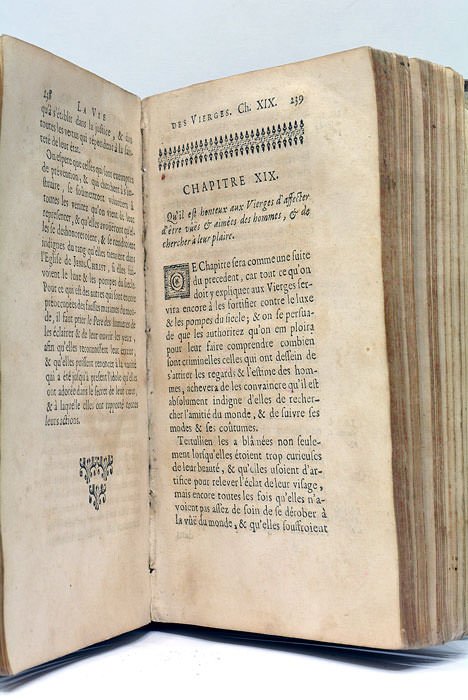 238 LA VIE
qu'à s'établit dans la justice, & dans
toutes les vertus qui répondent à la sain-
teté de leur état.
On espere que celles qui sont exemptes
de prévention, & qui cherchent à s'in-
struire, se soûmettront volontiers à
toutes les veritez qu'on vient de leur
representer, & qu'elles avoüeront qu'el-
les se deshonoreroient, & se rendroient
indignes du rang qu'elles tiennent dans
l'Eglise de JESUS-CHRIST, si elles sui-
voient le luxe & les pompes du siecle.
Pour ce qui est des autres qui sont encore
préoccupées des fausses maximes du mon-
de, il faut prier le Pere des lumieres de
les éclairer & de leur ouvrir les yeux,
afin qu'elles reconnoissent leur erreur,
& qu'elles pensent renoncer à la vanité
qui a été jusqu'à present l'idole qu'elles
ont adorée dans le secret de leur cœur,
& à laquelle elles ont raporté toutes
leurs actions.
DES VIERGES. Ch. XIX. 239
CHAPITRE XIX.
Qu'il est honteux aux Vierges d'affecter
d'être vuës & aimées des hommes, & de
chercher à leur plaire.
CE Chapitre sera comme une suite
du precedent, car tout ce qu'on
doit y expliquer aux Vierges ser-
vira encore à les fortifier contre le luxe
& les pompes du siecle; & on se persua-
de que les authoritez qu'on em ploira
pour leur faire comprendre combien
sont criminelles celles qui ont dessein de
s'attirer les regards & l'estime des hom-
mes, achevera de les convaincre qu'il est
absolument indigne d'elles de recher-
cher l'amitié du monde, & de suivre ses
modes & ses coûtumes.
Tertullien les a blâmées non seule-
ment lorsqu'elles étoient trop curieuses
de leur beauté, & qu'elles usoient d'ar-
tifice pour relever l'éclat de leur visage,
mais encore toutes les fois qu'elles n'a-
voient pas assez de soin de se dérober à
la vûë du monde, & qu'elles souffroient